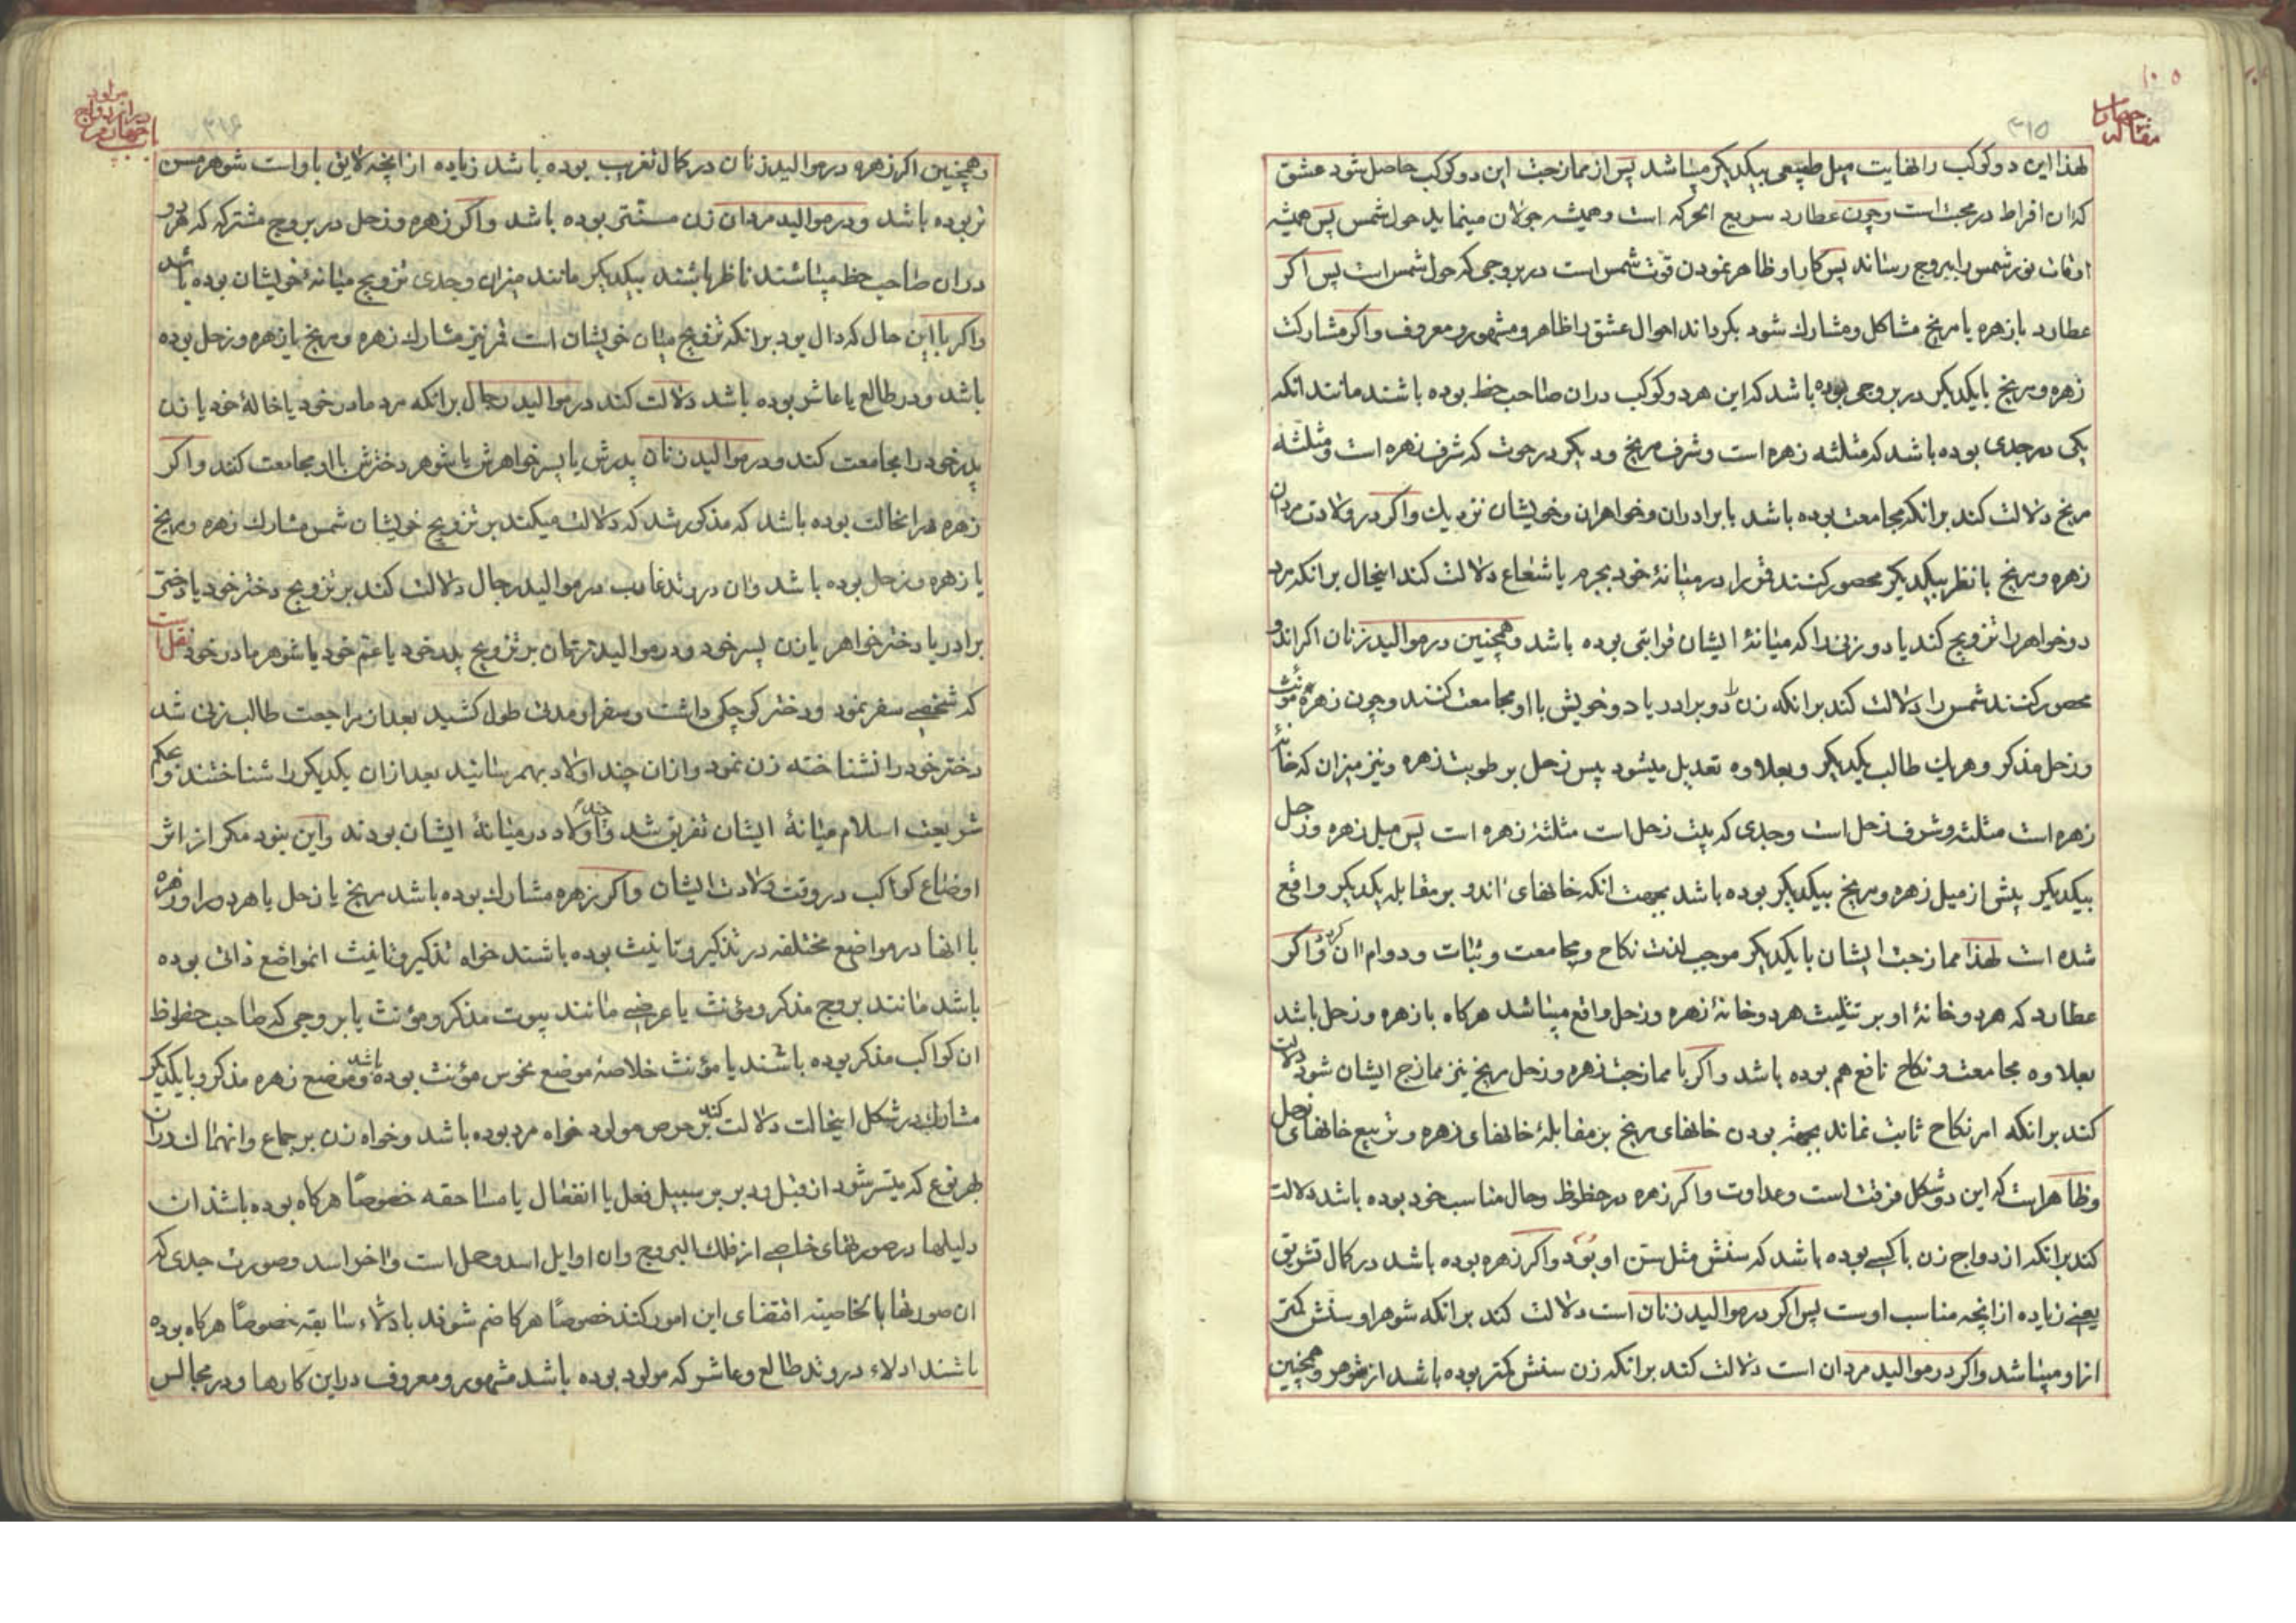 مقاله چهارم
۳۱۵
لهذا این دو کوکب را نهایت میل طبیعی بیکدیکر میباشد پس از ممازجت این دو کوکب حاصل شود عشق
که ان افراط در محبت است و چون عطارد سریع الحرکه است و همیشه جولان مینماید حول شمس پس همیشه
اوقات نور شمس را ببروج رساند پس کار او ظاهر نمودن قوت شمس است در بروجی که حول شمس است پس اکر
عطارد با زهره یا مریخ مشاکل و مشارک شود بکرداند احوال عشق را ظاهر و مشهور و معروف و اکر مشارکت
زهره و مریخ با یکدیکر در بروجی بوده باشد که این هر دو کوکب در ان صاحب حظ بوده باشند مانند انکه
یکی در جدی بوده باشد که مثلثه زهره است و شرف مریخ و دیکر در حوت که شرف زهره است و مثلثه
مریخ دلالت کند بر انکه مجامعت بوده باشد با برادران و خواهران و خویشان نزدیک و اکر در ولادت مردان
زهره و مریخ با نظر بیکدیکر محصور کنند قمر را در میانهٔ خود بجرم یا شعاع دلالت کند اینحال بر انکه مرد
دو خواهر را تزویج کند یا دو زنی را که میانهٔ ایشان قرابتی بوده باشد و همچنین در موالید زنان اکر اندو
محصور کنند شمس را دلالت کند بر انکه زن را دو برادر یا دو خویش با او مجامعت کنند و چون زهره مؤنث
و زحل مذکر و هریک طالب یکدیکر و بعلاوه تعدیل میشود یبس زحل بر طوبت زهره و نیز میزان که خانهٔ
زهره است مثلثه و شرف زحل است و جدی که بیت زحل است مثلثهٔ زهره است پس میل زهره و زحل
بیکدیکر بیش از میل زهره و مریخ بیکدیکر بوده باشد بجهت انکه خانهای اندو بر مقابله یکدیکر واقع
شده است لهذا ممازجت ایشان با یکدیکر موجب لذت نکاح و مجامعت و ثبات و دوام ان کردد و اکر
عطارد که هر دو خانهٔ او بر تثلیث هر دو خانهٔ زهره و زحل واقع میباشد هرکاه با زهره و زحل باشد
بعلاوه مجامعت و نکاح نافع هم بوده باشد و اکر با ممازجت زهره و زحل مریخ نیز ممازج ایشان شود دلالت
کند بر انکه امر نکاح ثابت نماند بجهته بودن خانهای مریخ بر مقابلهٔ خانهای زهره و تربیع خانهای زحل
و ظاهر است که این دو شکل فرقت است و عداوت و اکر زهره در حظوظ و حال مناسب خود بوده باشد دلالت
کند بر انکه ازدواج زن با کسی بوده باشد که سنش مثل سن او بود و اکر زهره بوده باشد در کمال تشریق
یعنی زیاده از انچه مناسب اوست پس اکر در موالید زنان است دلالت کند بر انکه شوهر او سنش کمتر
از او میباشد و اکر در موالید مردان است دلالت کند بر انکه زن سنش کمتر بوده باشد از شوهر و همچنین
باب چهارم در ازدواج مولود
۳۱۶
و همچنین اکر زهره در موالید زنان در کمال تغریب بوده باشد زیاده از انچه لایق باو است شوهر مسن
تر بوده باشد و در موالید مردان زن مسنتی بوده باشد و اکر زهره و زحل در بروج مشترکه که هر دو
در ان صاحب حظ میباشند ناظر باشند بیکدیکر مانند میزان و جدی تزویج میانهٔ خویشان بوده باشد
و اکر با این حال که دال بود بر انکه تزویج میان خویشان است قمر نیز مشارک زهره و مریخ یا زهره و زحل بوده
باشد و در طالع یا عاشر بوده باشد دلالت کند در موالید رجال بر انکه مرد مادر خود یا خالهٔ خود یا زن
پدر خود را مجامعت کند و در موالید زنان پدرش یا پسر خواهرش یا شوهر دخترش با او مجامعت کنند و اکر
زهره در انحالت بوده باشد که مذکور شد که دلالت میکند بر تزویج خویشان شمس مشارک زهره و مریخ
یا زهره و زحل بوده باشد و ان در وتد غارب در موالید رجال دلالت کند بر تزویج دختر خود یا دختر
برادر یا دختر خواهر یا زن پسر خود و در موالید زنان بر تزویج پدر خود یا عم خود یا شوهر مادر خود نقل است
که شخصی سفر نمود و دختر کوچکی داشت و سفر او مدتی طول کشید بعد از مراجعت طالب زنی شد
دختر خود را نشناخته زن نمود و از ان چند اولاد بهمرسانید بعد از ان یکدیکر را شناختند و بحکم
شریعت اسلام میانهٔ ایشان تفریق شد و اولاد چند در میانهٔ ایشان بودند و این نبود مکر از اثر
اوضاع کواکب در وقت ولادت ایشان و اکر زهره مشارک بوده باشد مریخ یا زحل یا هر دو را و زهره
با انها در مواضع مختلفه در تذکیر و تانیث بوده باشند خواه تذکیر و تانیث انمواضع ذاتی بوده
باشد مانند بروج مذکر و مؤنث یا عرضی مانند بیوت مذکر و مؤنث یا بروجی که صاحب حظوظ
ان کواکب مذکر بوده باشند یا مؤنث خلاصه موضع نحوس مؤنث بوده باشد و موضع زهره مذکر و با یکدیکر
مشارک در شکل اینحالت دلالت کند بر حرص مولود خواه مرد بوده باشد و خواه زن بر جماع و انهماک در ان
بهر نوع که میسر شود از قبل و دبر بر سبیل فعل یا انفعال یا مساحقه خصوصًا هرکاه بوده باشد ان
دلیلها در صورتهای خاصی از فلک البروج و ان اوایل اسد و حمل است و اواخر اسد و صورت جدی که
ان صورتها بالخاصیته اقتضای این امور کنند خصوصًا هرکا ضم شوند با دلاء سابقه خصوصًا هرکاه بوده
باشند ادلاء در وتد طالع و عاشر که مولود بوده باشد مشهور و معروف در این کارها و در مجالس